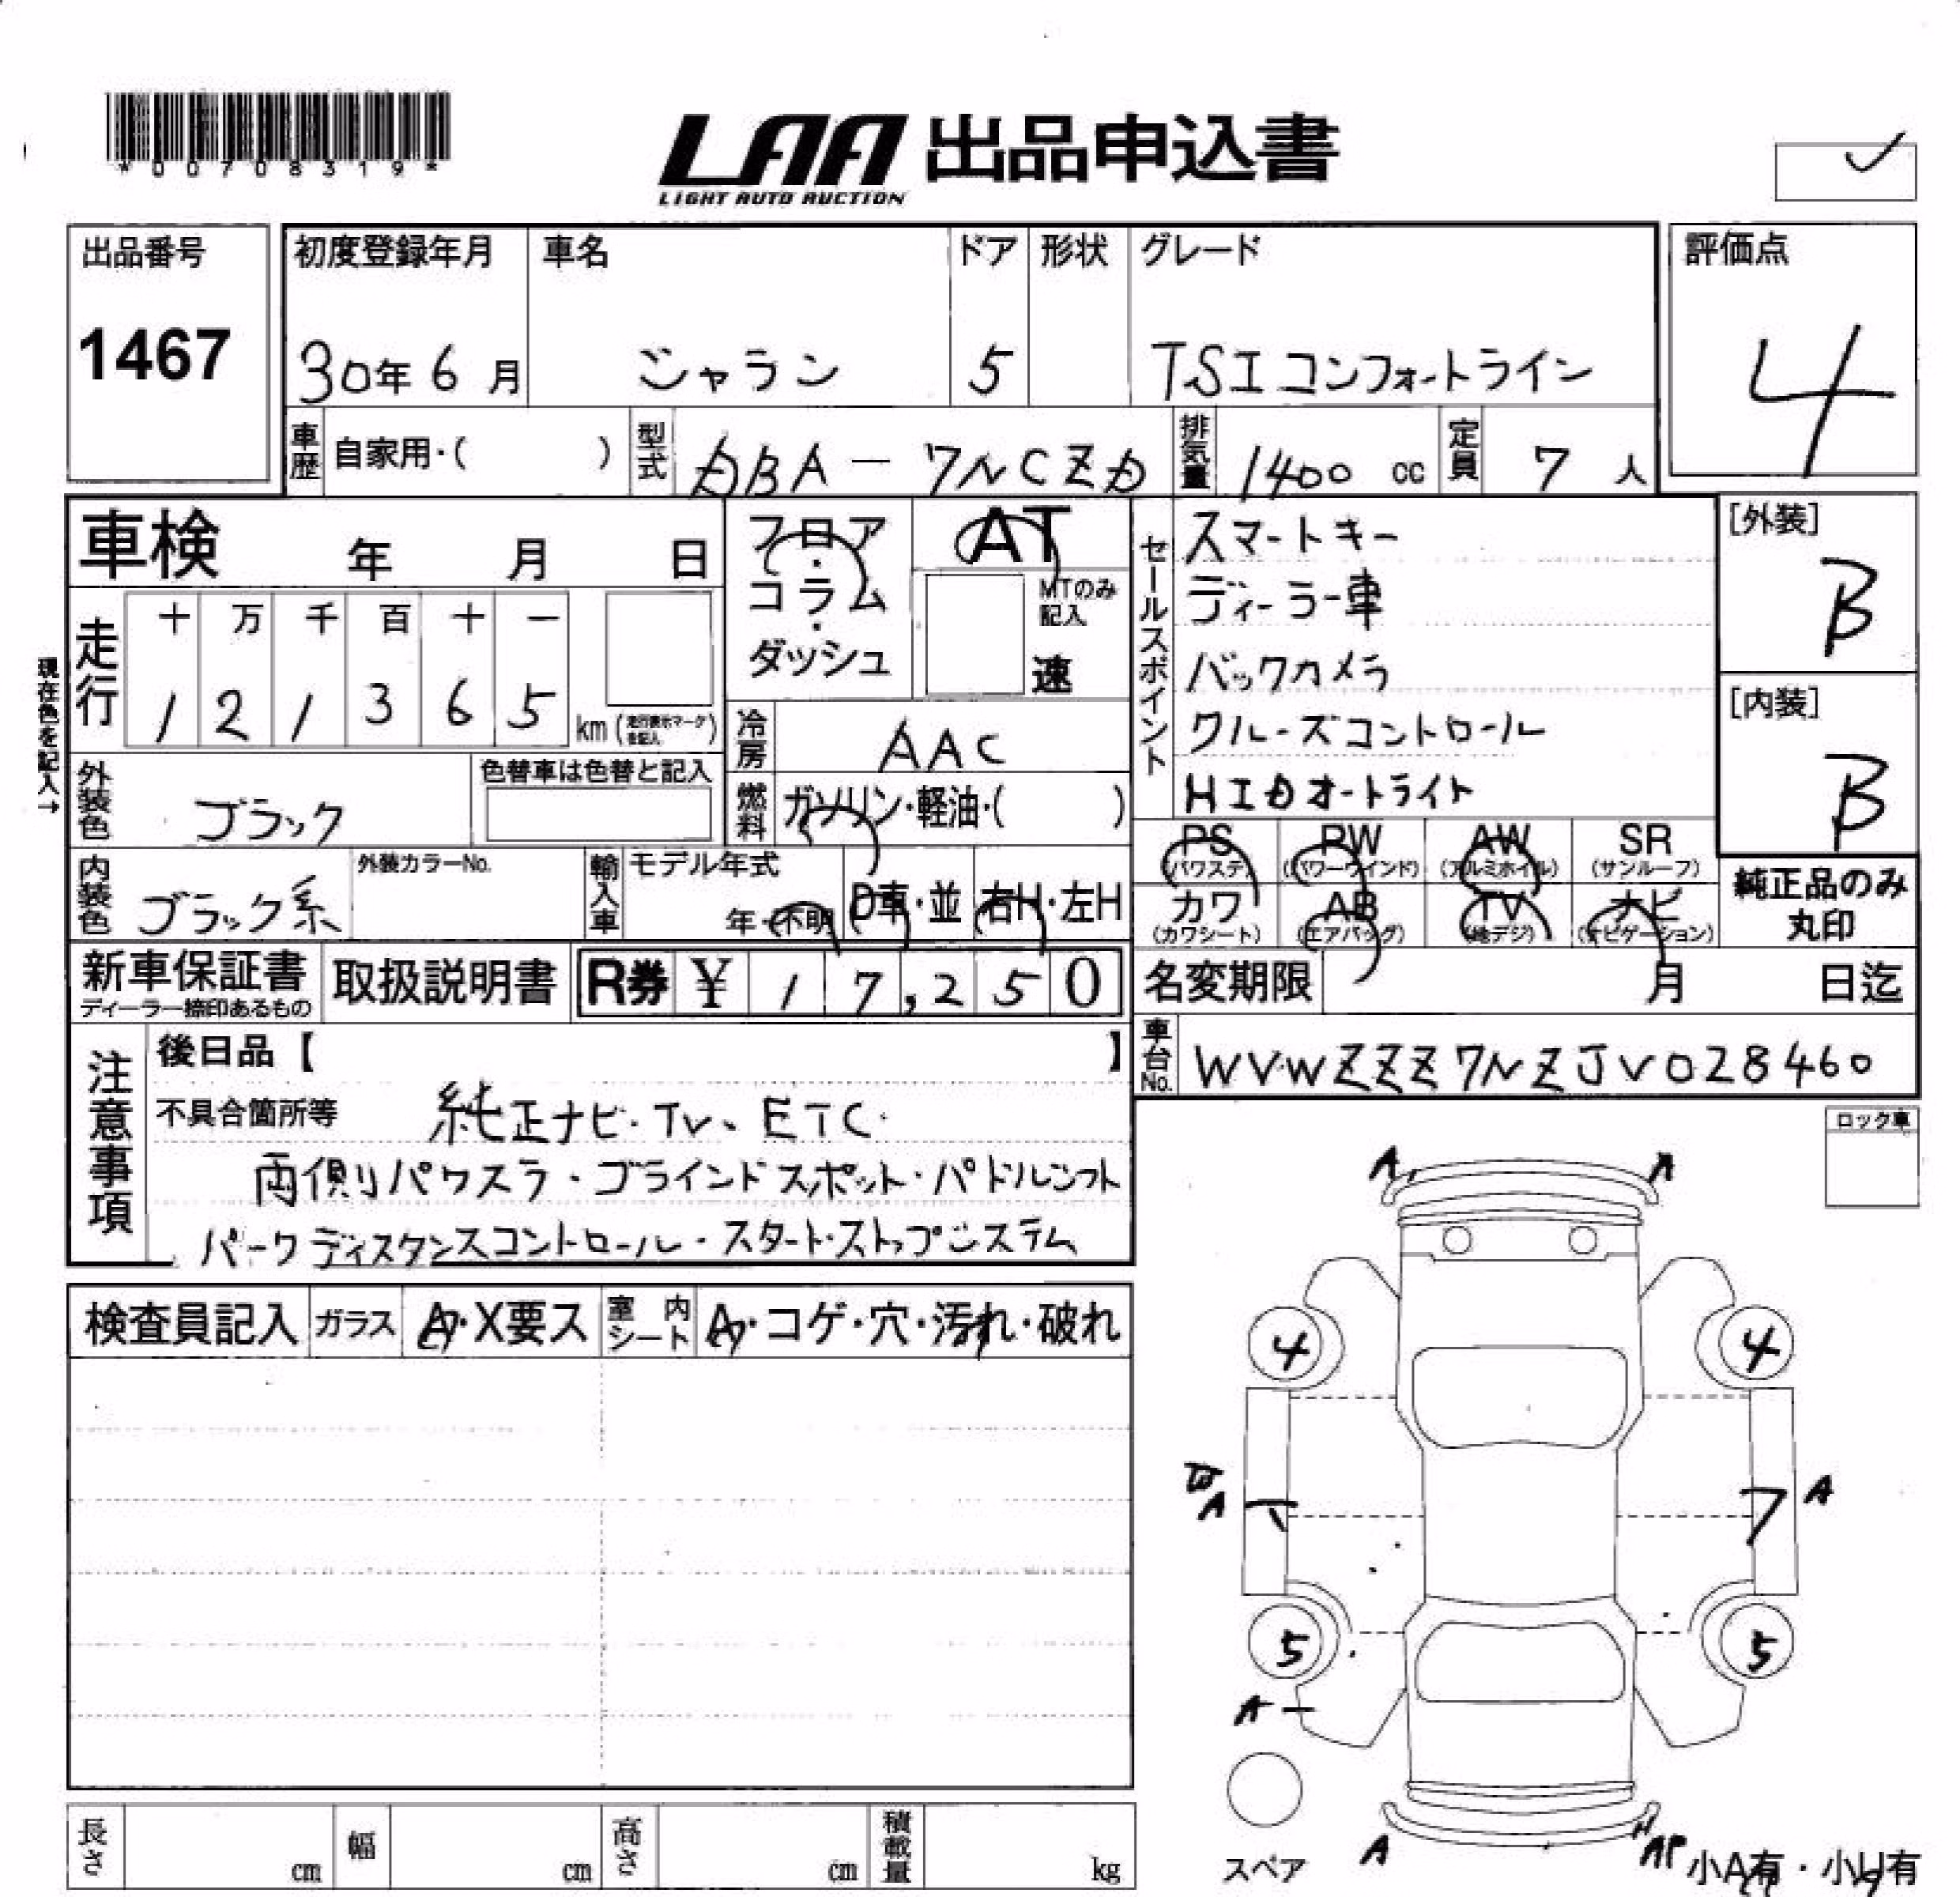 *00708319*
LAA 出品申込書
LIGHT AUTO AUCTION
出品番号
1467
初度登録年月
30年6月
車名
シャラン
ドア
5
形状
グレード
TSIコンフォートライン
評価点
4
車歴
自家用・( )
型式
DBA-7NCZD
排気量
1400 cc
定員
7 人
車検 年 月 日
フロア・コラム・ダッシュ
AT
MTのみ記入
速
現在色を記入→
走行
十 万 千 百 十 一
1 2 1 3 6 5 km
冷房
AAC
外装色
ブラック
色替車は色替と記入
燃料
ガソリン・軽油・( )
内装色
ブラック系
外装カラーNo.
輸入車
モデル年式
年・不明
D車・並
右H・左H
新車保証書
ディーラー捺印あるもの
取扱説明書
R券 ¥17,250
セールスポイント
スマートキー
ディーラー車
バックカメラ
クルーズコントロール
HIDオートライト
[外装]
B
[内装]
B
PS (パワステ)
PW (パワーウインド)
AW (アルミホイル)
SR (サンルーフ)
カワ (カワシート)
AB (エアバッグ)
TV (地デジ)
ナビ (ナビゲーション)
純正品のみ丸印
名変期限 月 日迄
車台No.
WVWZZZ7NZJV028460
注意事項
後日品【 】
不具合箇所等
純正ナビ・TV、ETC・
両側リパワスラ・ブラインドスポット・パドルシフト
パークディスタンスコントロール・スタート・ストップシステム
ロック車
検査員記入
ガラス
A・X要ス
室内シート
A・コゲ・穴・汚れ・破れ
A A
4 4
A A
5 5
A
スペア
A AP
小A有・小U有
長さ cm
幅 cm
高さ cm
積載量 kg